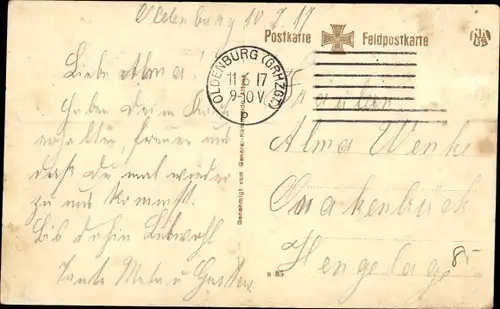 Oldenburg 10.7.17
Postkarte Feldpostkarte
OLDENBURG (GRHZGT.)
11 17
9-10 V
P
Liebe Alma!
Haben deine Karte
erhalten, freuen uns
daß du mal wieder
zu uns kommst.
Bis dahin Lebwohl
Tante Meta u
Genehmigt vom General-Kommando Altona
Fräulein
Alma Wenke
Quakenbrück
Hengelage
8.-
S 85